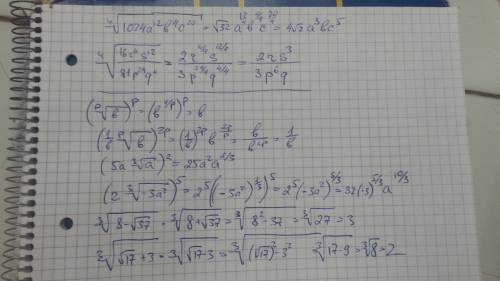 ⁴√(1024a¹²b⁴c²⁰) = √32 a^(12/4) b^(4/4) c^(20/4) = 4√2 a³bc⁵
⁴√(16r⁴s¹²/81p²⁴q⁴) = 2r^(4/4)s^(12/4)/3p^(24/4)q^(4/4) = 2rs³/3p⁶q
(ᵖ√b)ᵖ = (b^(1/p))ᵖ = b
(1/b ᵖ√b)²ᵖ = (1/b)²ᵖ b^(2p/p)
(5a ³√a)² = 25a²a^(2/3)
(2 ³√(-3a²))⁵ = 2⁵((-3a²)^(1/3))⁵ = 2⁵(-3a²)^(5/3) = 32(-3)^(5/3) a^(10/3)
³√(8-√37) · ³√(8+√37) = ³√(8²-37) = ³√27 = 3
³√(√17+3) · ³√(√17-3) = ³√((√17)²-3²) ³√(17-9) = ³√8 = 2